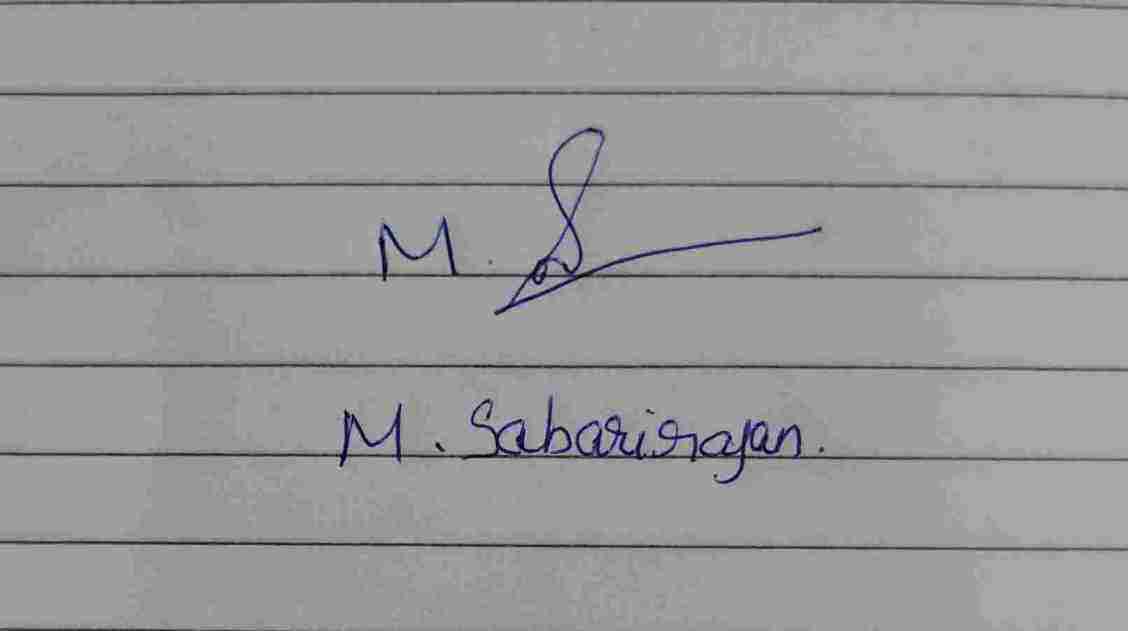 M. S
M. Sabarirajan.